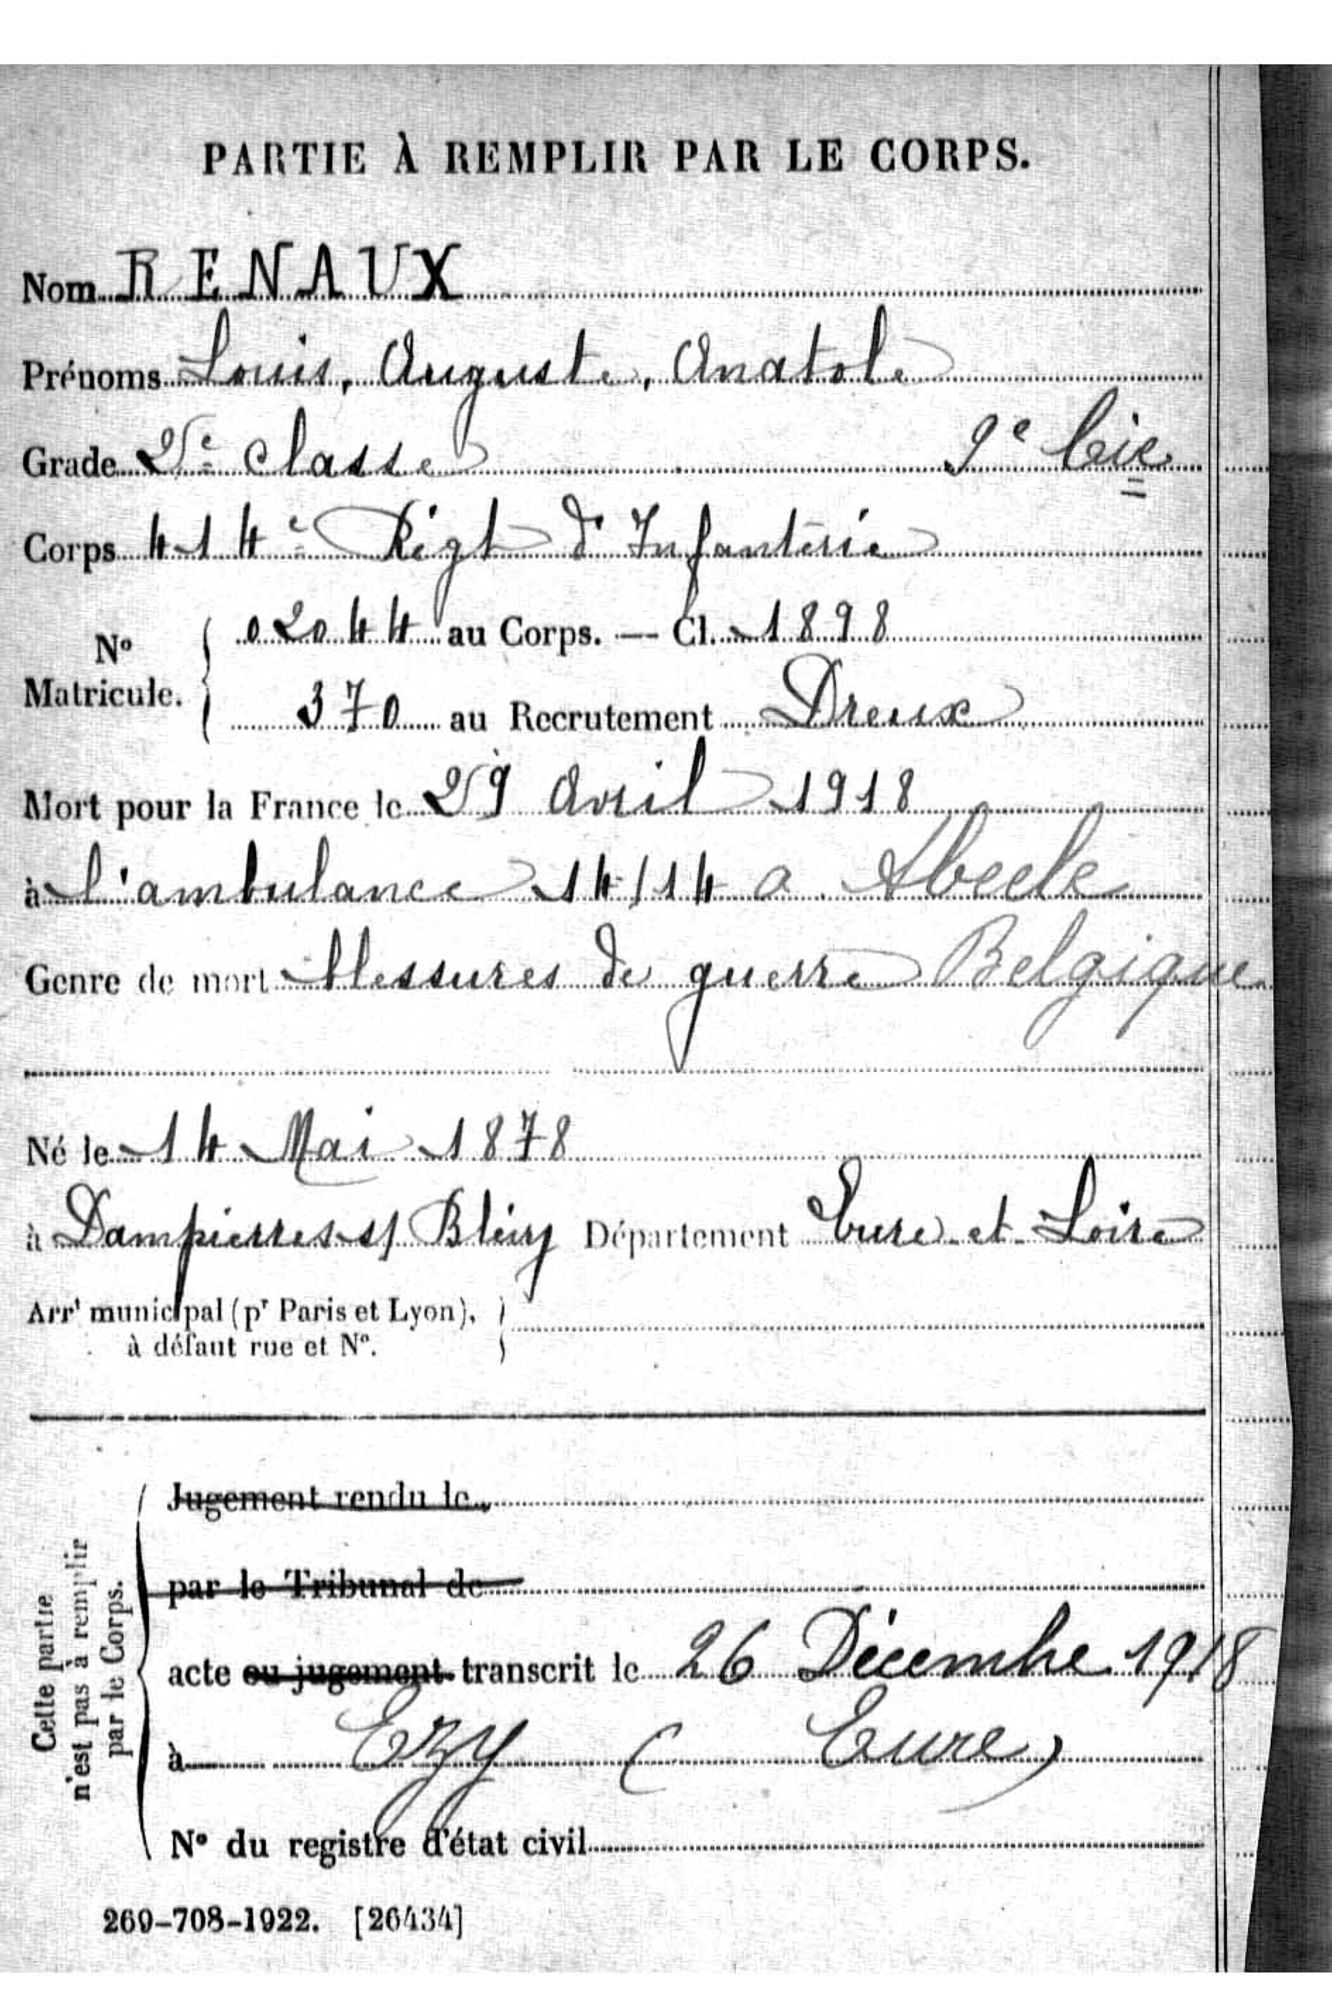 PARTIE À REMPLIR PAR LE CORPS.
Nom RENAUX
Prénoms Louis, Auguste, Anatole
Grade 2e classe 9e Cie
Corps 414e Régt d'Infanterie
No Matricule. 02044 au Corps. — Cl. 1898
370 au Recrutement Dreux
Mort pour la France le 29 Avril 1918
à l'ambulance 14/14 a Abeele
Genre de mort blessures de guerre Belgique
Né le 14 Mai 1878
à Dampierres s/ Blévy Département Eure-et-Loire
Arrt municipal (pr Paris et Lyon),
à défaut rue et No.
Cette partie
n'est pas à remplir
par le Corps.
Jugement rendu le
par le Tribunal de
acte ou jugement transcrit le 26 Décembre 1918
à Ezy (Eure)
No du registre d'état civil
269-708-1922. [26434]